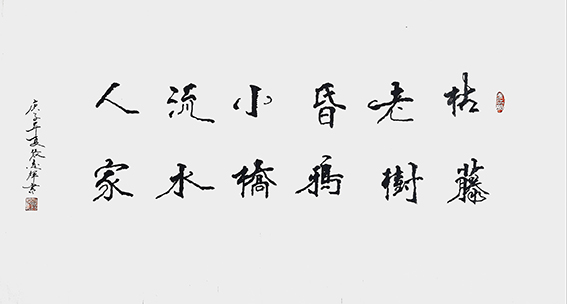 枯藤
老樹
昏鴉
小橋
流水
人家
庚子年夏